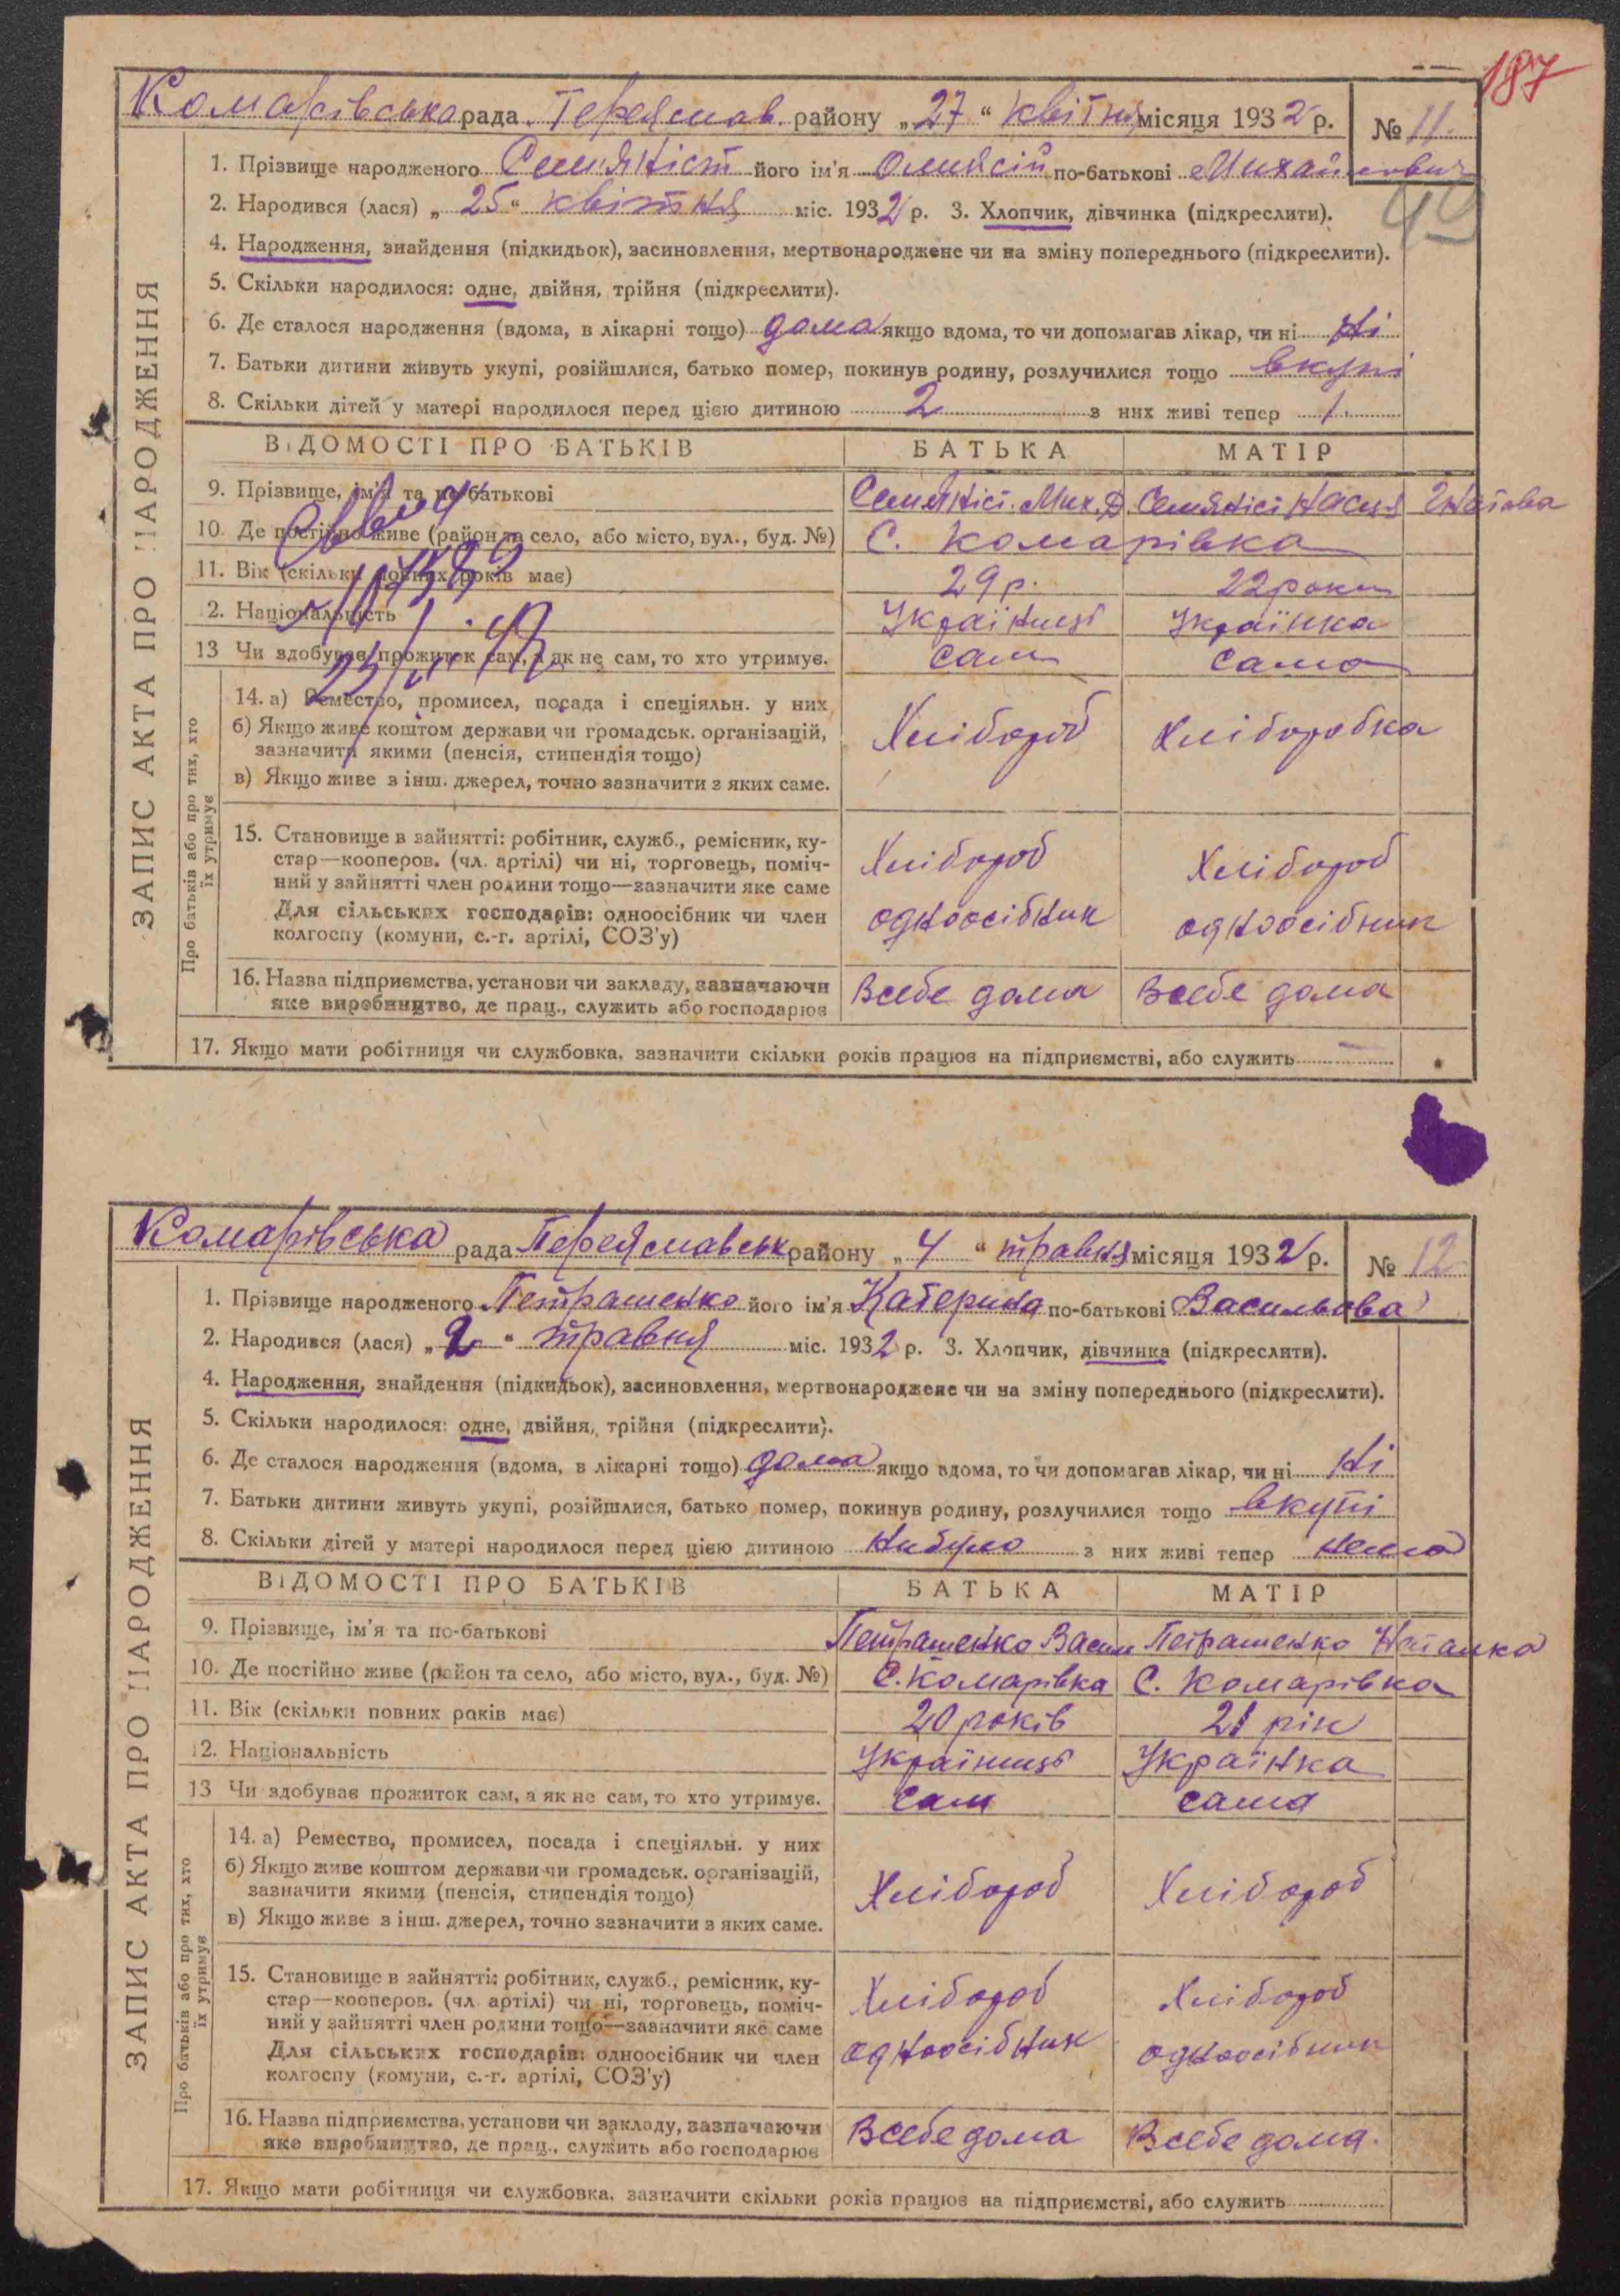 187
Комарівська рада Переяслав. району „27“ квітня місяця 1932 р. № 11.
1. Прізвище народженого його ім'я по-батькові Михайлович
2. Народився (лася) „25“ квітня міс. 1932 р. 3. Хлопчик, дівчинка (підкреслити).
4. Народження, знайдення (підкидьок), засиновлення, мертвонароджене чи на зміну попереднього (підкреслити).
5. Скільки народилося: одне, двійня, трійня (підкреслити).
6. Де сталося народження (вдома, в лікарні тощо) дома якщо вдома, то чи допомагав лікар, чи ні Ні
7. Батьки дитини живуть укупі, розійшлися, батько помер, покинув родину, розлучилися тощо вкупі
8. Скільки дітей у матері народилося перед цією дитиною 2 з них живі тепер 1.
ЗАПИС АКТА ПРО НАРОДЖЕННЯ
ВІДОМОСТІ ПРО БАТЬКІВ БАТЬКА МАТІР
9. Прізвище, ім'я та по-батькові
10. Де постійно живе (район та село, або місто, вул., буд. №) С. Комарівка
11. Вік (скільки повних років має) 29 р. 22 роки
2. Національність Українець Українка
13 Чи здобуває прожиток сам, а як не сам, то хто утримує. сам сама
Про батьків або про тих, хто їх утримує
14. а) Ремество, промисел, посада і спеціяльн. у них
б) Якщо живе коштом держави чи громадськ. організацій,
зазначити якими (пенсія, стипендія тощо)
Хлібороб Хліборобка
в) Якщо живе з інш. джерел, точно зазначити з яких саме.
15. Становище в зайнятті: робітник, служб., ремісник, ку-
стар—кооперов. (чл. артілі) чи ні, торговець, поміч- Хлібороб Хлібороб
ний у зайнятті член родини тощо—зазначити яке саме
Для сільських господарів: одноосібник чи член одноосібник одноосібник
колгоспу (комуни, с.-г. артілі, СОЗ'у)
16. Назва підприємства, установи чи закладу, зазначаючи
яке виробництво, де прац., служить або господарює Всебе дома Всебе дома
17. Якщо мати робітниця чи службовка, зазначити скільки років працює на підприємстві, або служить
Комарівська рада Переяславськ району „4“ травня місяця 1932 р. № 12
1. Прізвище народженого Петрашенко його ім'я Катерина по-батькові Васильова
2. Народився (лася) „2“ травня міс. 1932 р. 3. Хлопчик, дівчинка (підкреслити).
4. Народження, знайдення (підкидьок), засиновлення, мертвонароджене чи на зміну попереднього (підкреслити).
5. Скільки народилося: одне, двійня, трійня (підкреслити).
6. Де сталося народження (вдома, в лікарні тощо) дома якщо вдома, то чи допомагав лікар, чи ні Ні
7. Батьки дитини живуть укупі, розійшлися, батько помер, покинув родину, розлучилися тощо вкупі
8. Скільки дітей у матері народилося перед цією дитиною Небуло з них живі тепер нема
ЗАПИС АКТА ПРО НАРОДЖЕННЯ
ВІДОМОСТІ ПРО БАТЬКІВ БАТЬКА МАТІР
9. Прізвище, ім'я та по-батькові Петрашенко Васил Петрашенко Наталка
10. Де постійно живе (район та село, або місто, вул., буд. №) С. Комарівка С. Комарівка
11. Вік (скільки повних років має) 20 років 21 рік
12. Національність Українець Українка
13 Чи здобуває прожиток сам, а як не сам, то хто утримує. сам сама
Про батьків або про тих, хто їх утримує
14. а) Ремество, промисел, посада і спеціяльн. у них
б) Якщо живе коштом держави чи громадськ. організацій,
зазначити якими (пенсія, стипендія тощо) Хлібороб Хлібороб
в) Якщо живе з інш. джерел, точно зазначити з яких саме.
15. Становище в зайнятті: робітник, служб., ремісник, ку-
стар—кооперов. (чл. артілі) чи ні, торговець, поміч- Хлібороб Хлібороб
ний у зайнятті член родини тощо—зазначити яке саме
Для сільських господарів: одноосібник чи член одноосібник одноосібник
колгоспу (комуни, с.-г. артілі, СОЗ'у)
16. Назва підприємства, установи чи закладу, зазначаючи
яке виробництво, де прац., служить або господарює Всебе дома Всебе дома.
17. Якщо мати робітниця чи службовка, зазначити скільки років працює на підприємстві, або служить